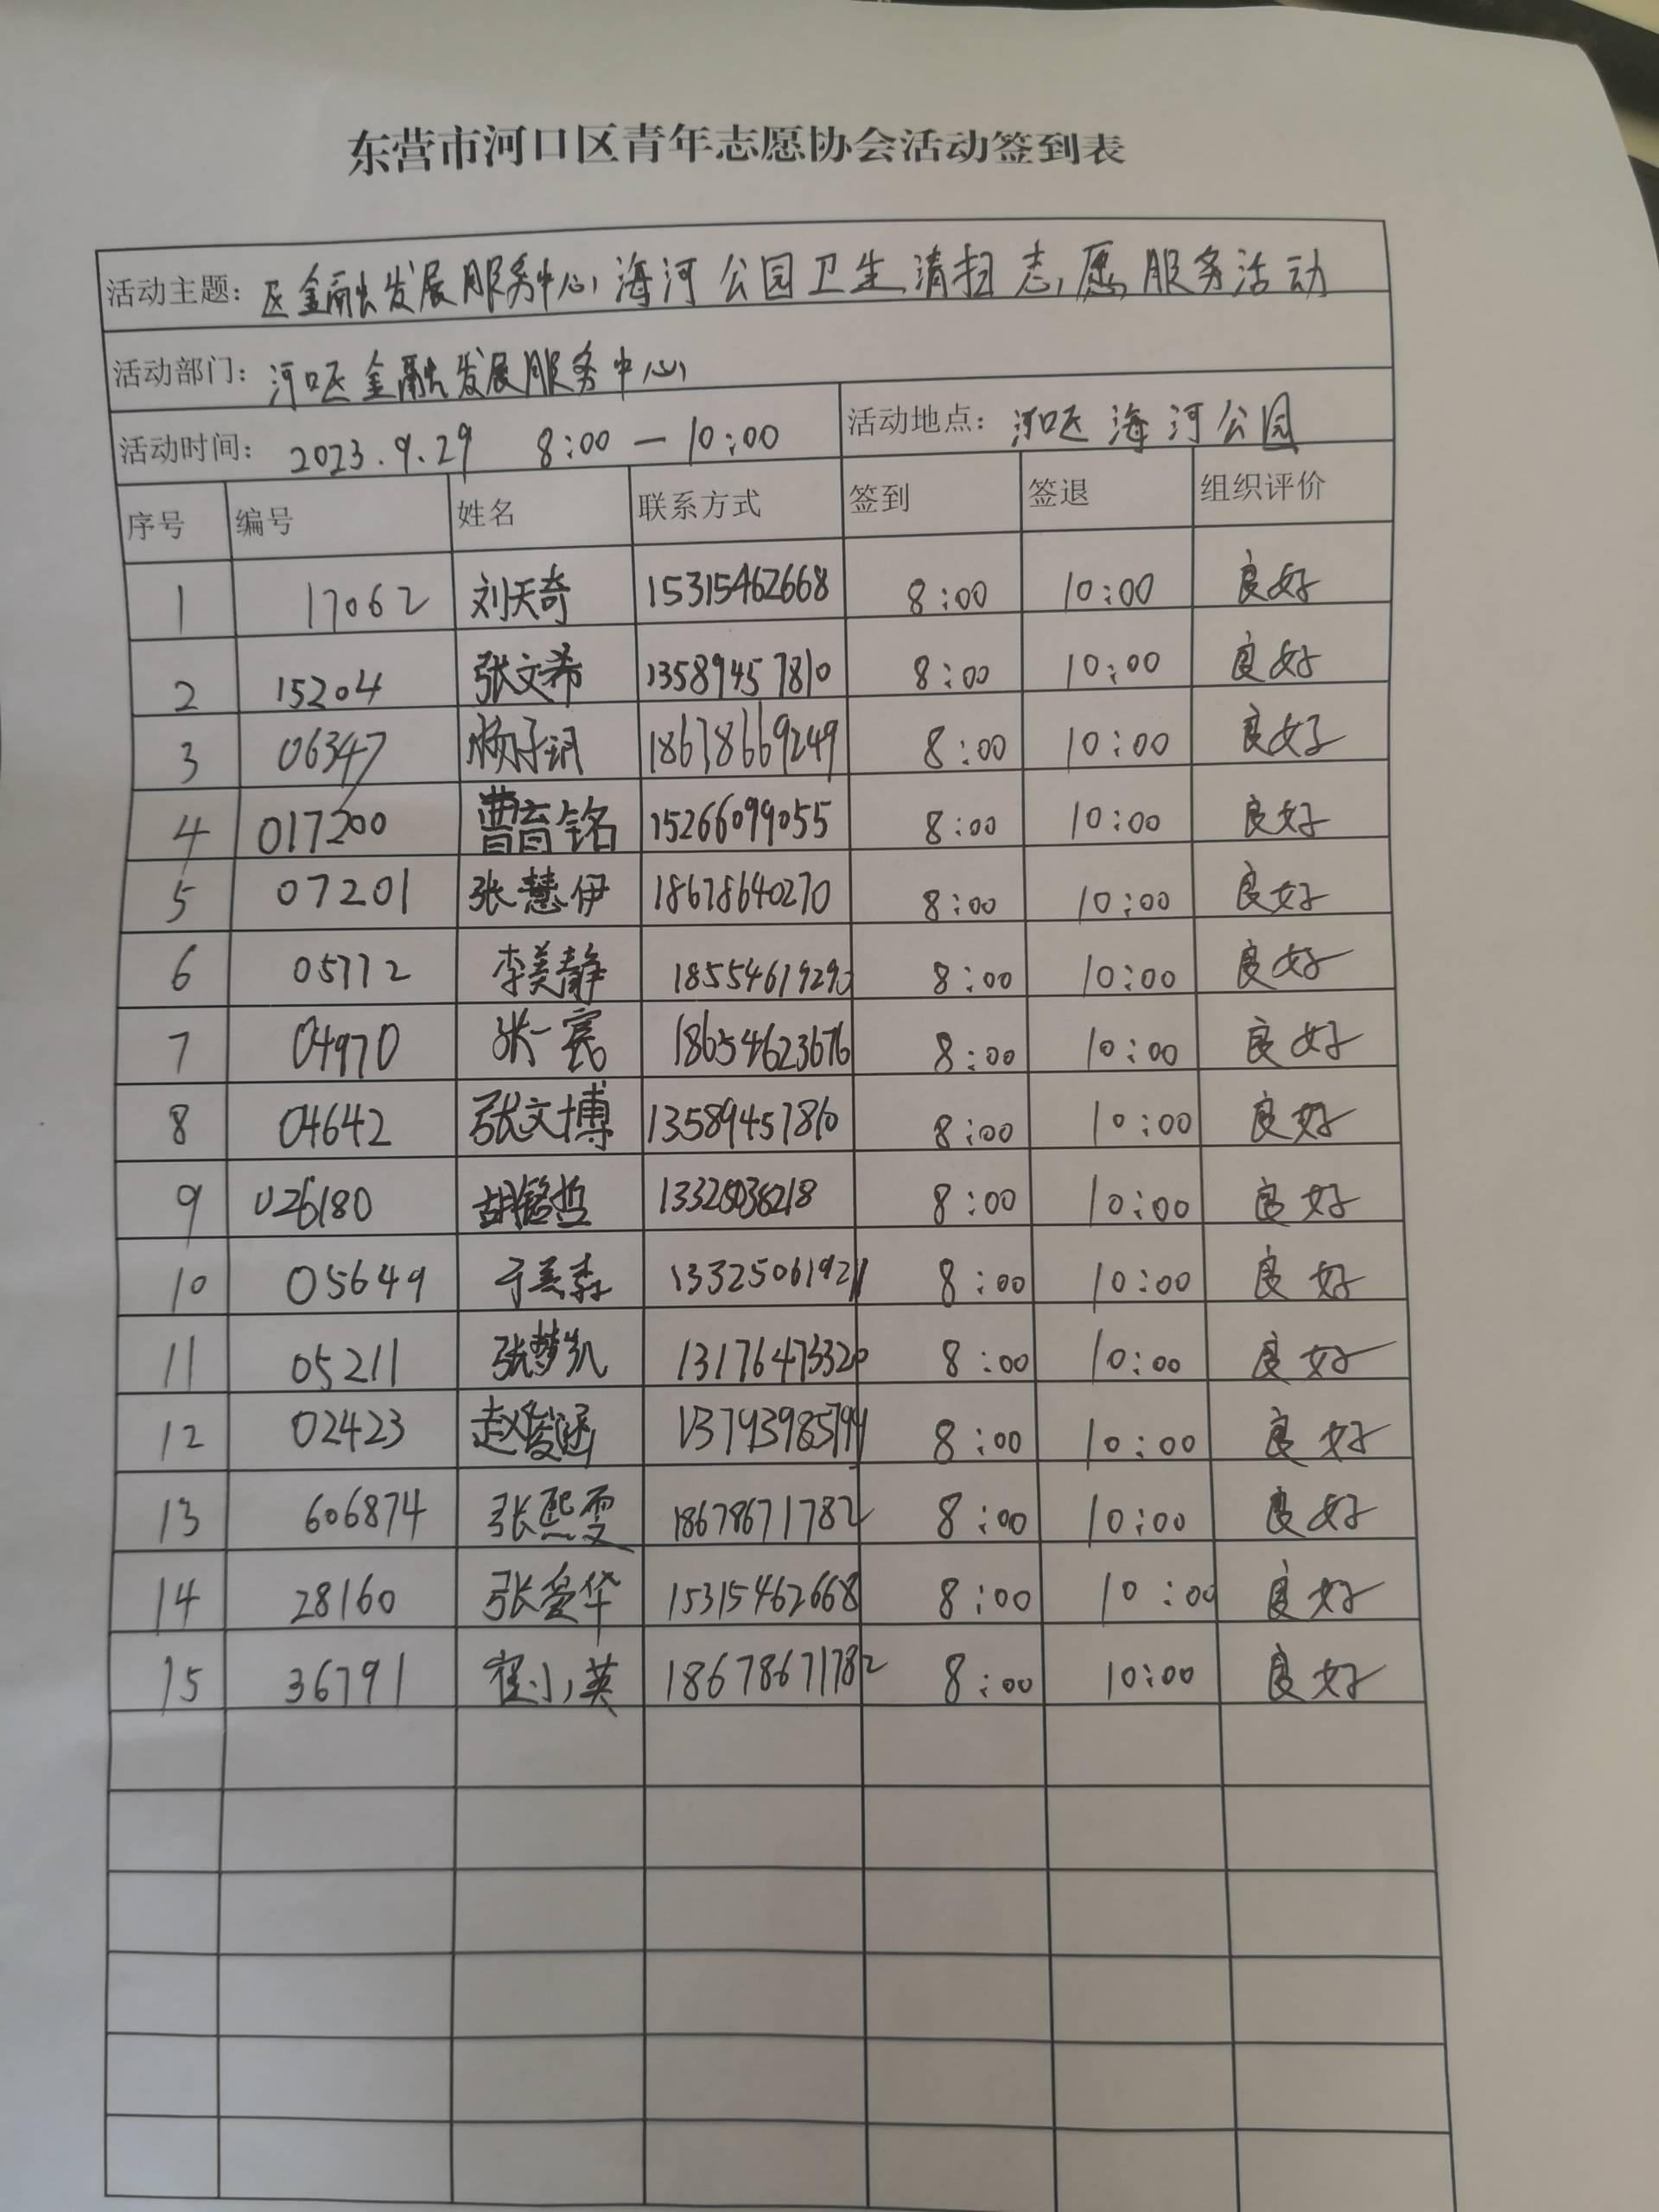 东营市河口区青年志愿协会活动签到表
活动主题: 区金融发展服务中心海河公园卫生清扫志愿服务活动
活动部门: 河口区金融发展服务中心
活动时间: 2023.9.29 8:00—10:00 活动地点: 河口区海河公园
序号 编号 姓名 联系方式 签到 签退 组织评价
1 17062 刘天奇 15315462668 8:00 10:00 良好
2 15204 张文希 13589457810 8:00 10:00 良好
3 06347 18678669249 8:00 10:00 良好
4 017200 曹育铭 15266099055 8:00 10:00 良好
5 07201 张慧伊 18678640270 8:00 10:00 良好
6 05772 李美静 18554619290 8:00 10:00 良好
7 04970 张一宸 18654623676 8:00 10:00 良好
8 04642 张文博 13589457810 8:00 10:00 良好
9 026180 胡铭哲 8:00 10:00 良好
10 05649 8:00 10:00 良好
11 05211 张梦凯 13176473320 8:00 10:00 良好
12 02423 赵俊涵 8:00 10:00 良好
13 606874 张熙雯 18678671782 8:00 10:00 良好
14 28160 张爱华 15315462668 8:00 10:00 良好
15 36791 崔小英 18678671782 8:00 10:00 良好